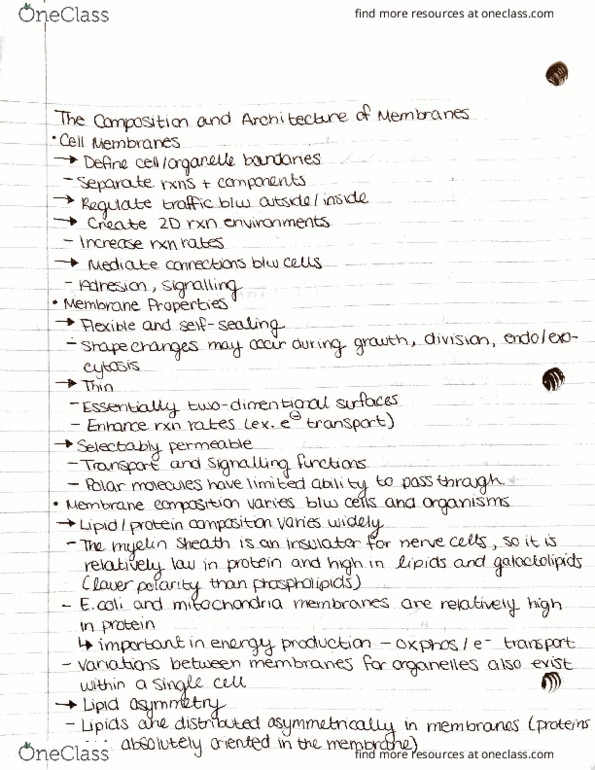 OneClass
find more resources at oneclass.com
The Composition and Architecture of Membranes
• Cell Membranes
→ Define cell/organelle boundaries
- Separate rxns + components
→ Regulate traffic b/w outside/inside
→ Create 2D rxn environments
- Increase rxn rates
→ Mediate connections b/w cells
- Adhesion, signalling
• Membrane Properties
→ Flexible and self-sealing
- Shape changes may occur during growth, division, endo/exo-
cytosis
→ Thin
- Essentially two-dimentional surfaces
- Enhance rxn rates (ex. e⊖ transport)
→ Selectably permeable
- Transport and signalling functions
- Polar molecules have limited ability to pass through
• Membrane composition varies b/w cells and organisms
→ Lipid/protein composition varies widely
- The myelin sheath is an insulator for nerve cells, so it is
relatively low in protein and high in lipids and galactolipids
(lower polarity than phospholipids)
- E.coli and mitochondria membranes are relatively high
in protein
↳ important in energy production - oxphos/e- transport
- Variations between membranes for organelles also exist
within a single cell
→ Lipid asymmetry
- Lipids are distributed asymmetrically in membranes (proteins
absolutely oriented in the membrane)
OneClass
find more resources at oneclass.com